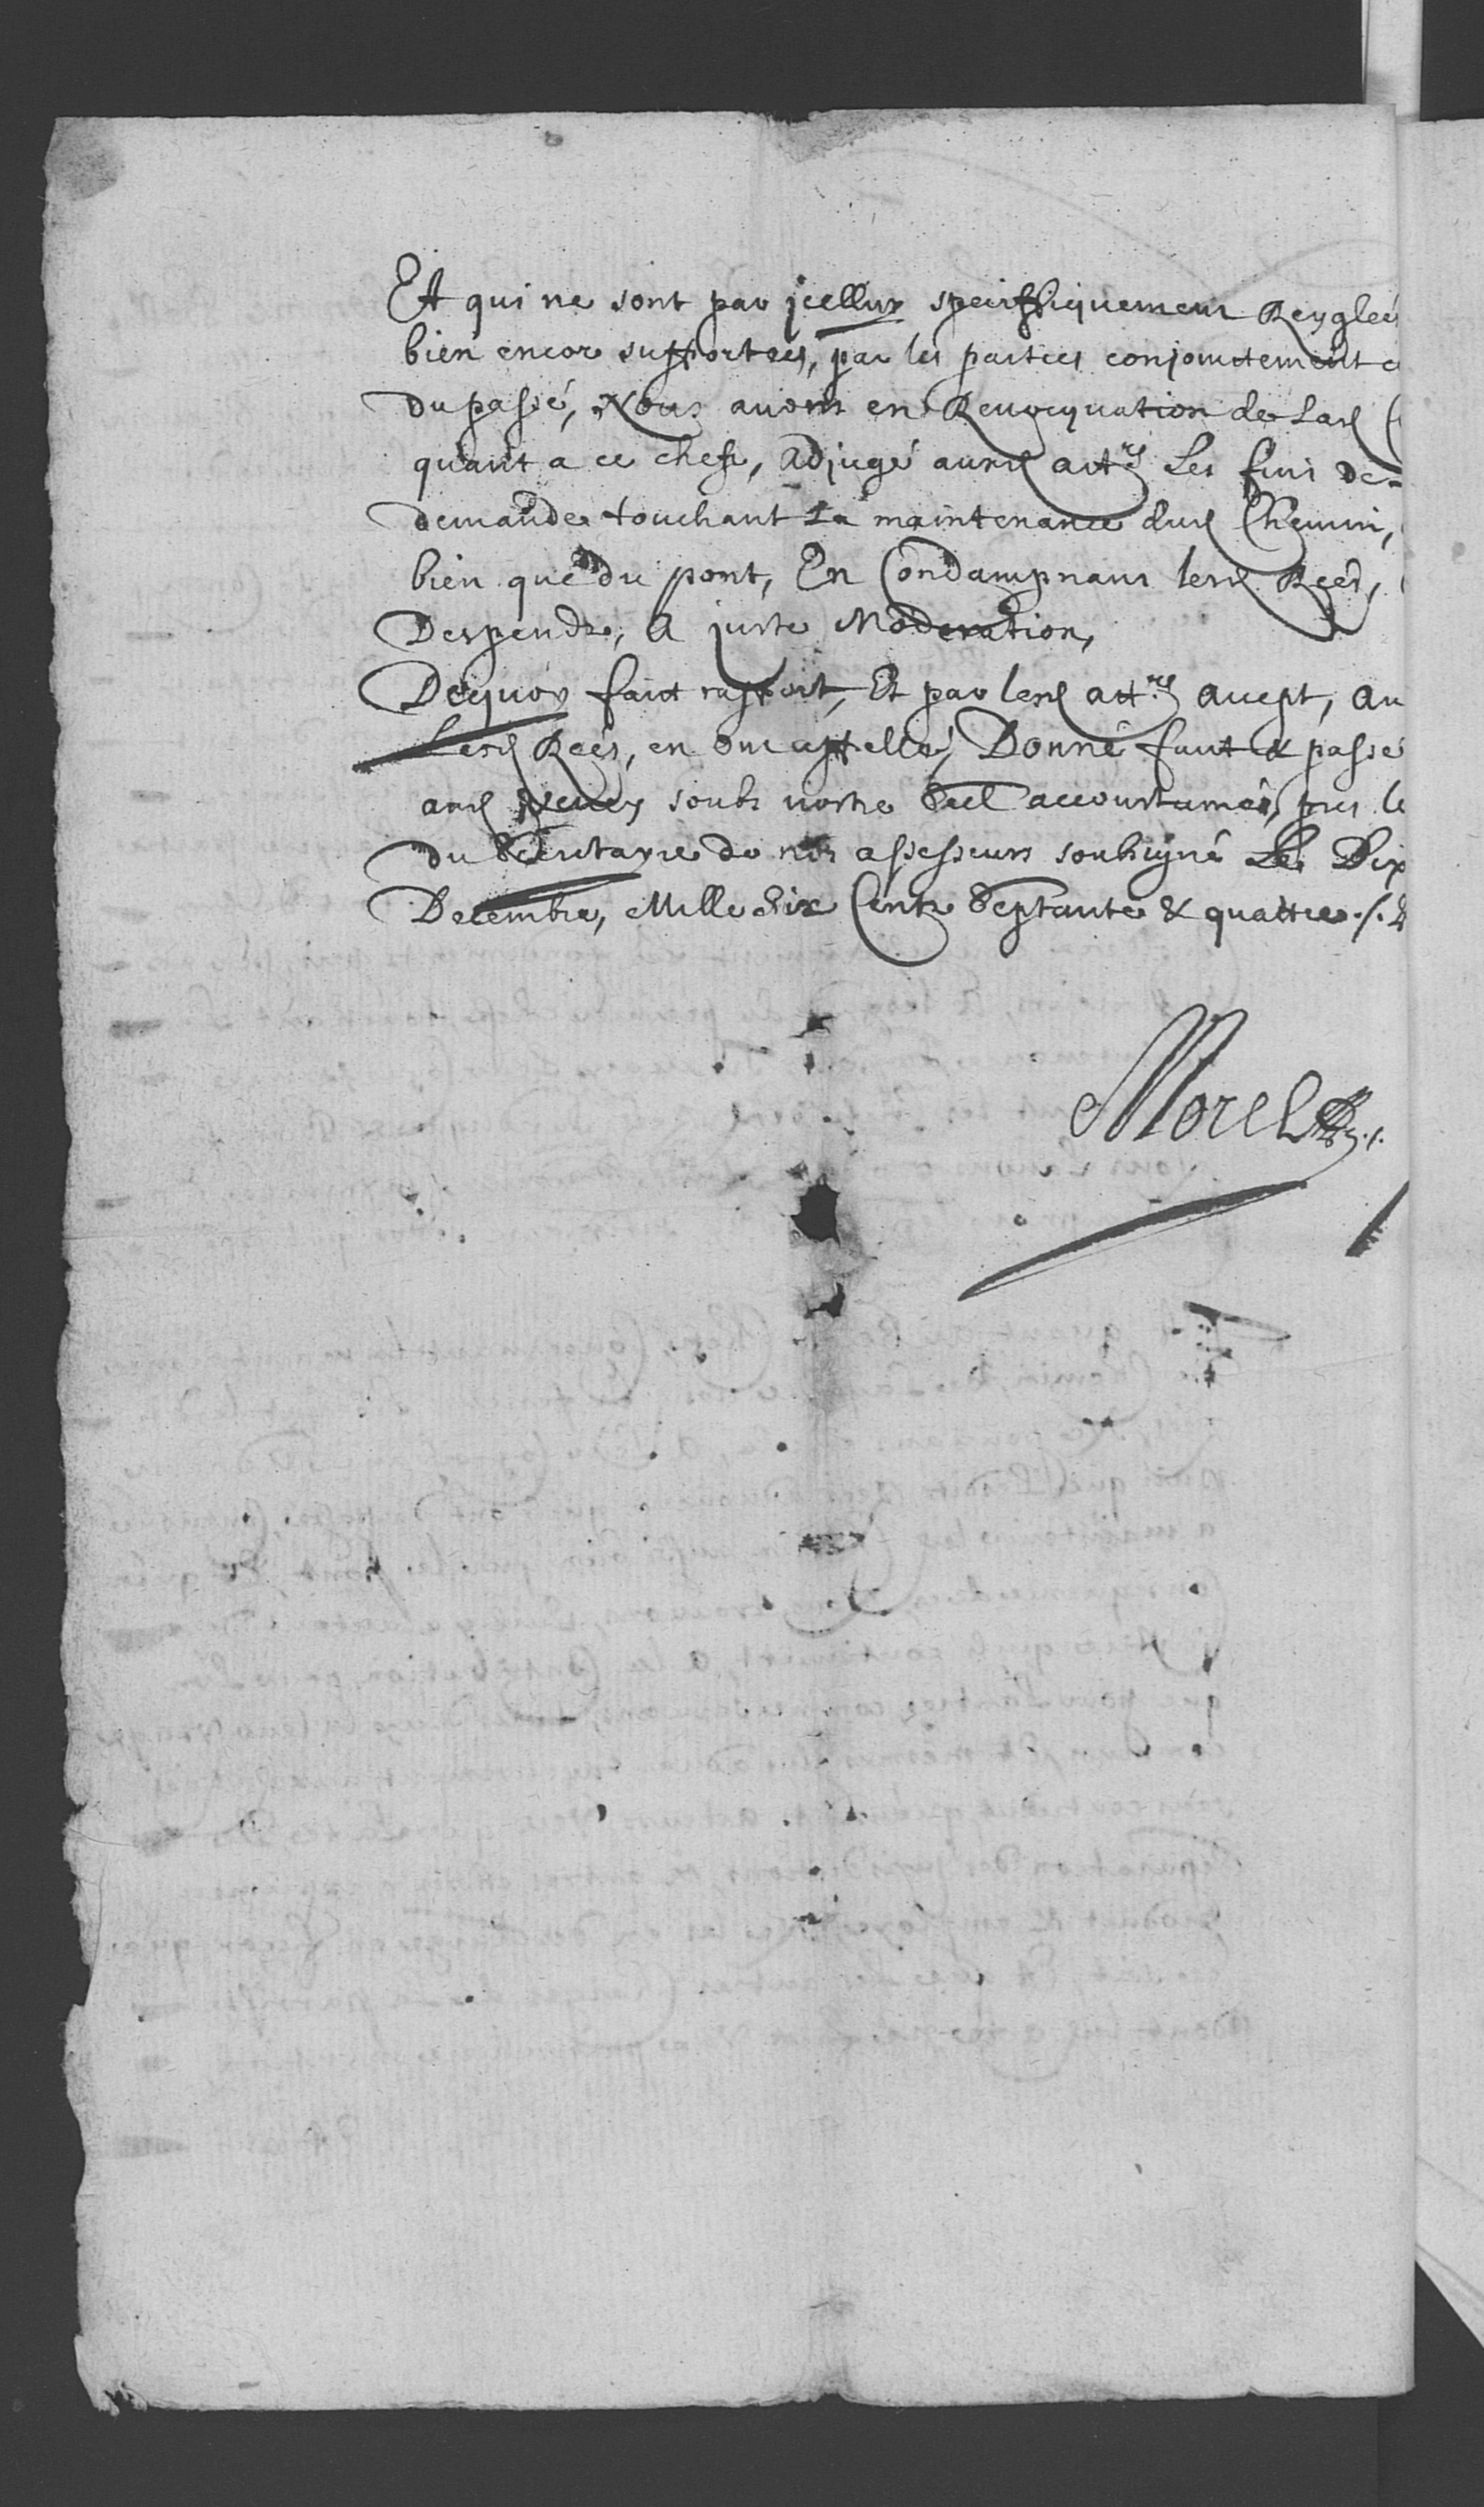 Et qui ne sont par jcelluy speciffiquement Reyglée
bien encor supportées, par les parties conjoinctement
du passé, Nous avons en Revocquation de Lad
quant a ce chefz, adjugé auxd actrs Les fins de
demande touchant La maintenance dud Chemin,
bien que du pont, En Condampnans lesd Rées,
Despends, A juste Moderation,
Dequoy faict rapport, Et par lesd attres accept, au
Lesd Rées, en ont appellé, Donné faict & passé
aud Vevey soubs nostre Seel accoustumé, pres le
du Secretayre de nos assesseurs soubsigné Le Dix
Decembre, Mille Six Cents Septante & quattre ./.
Morel